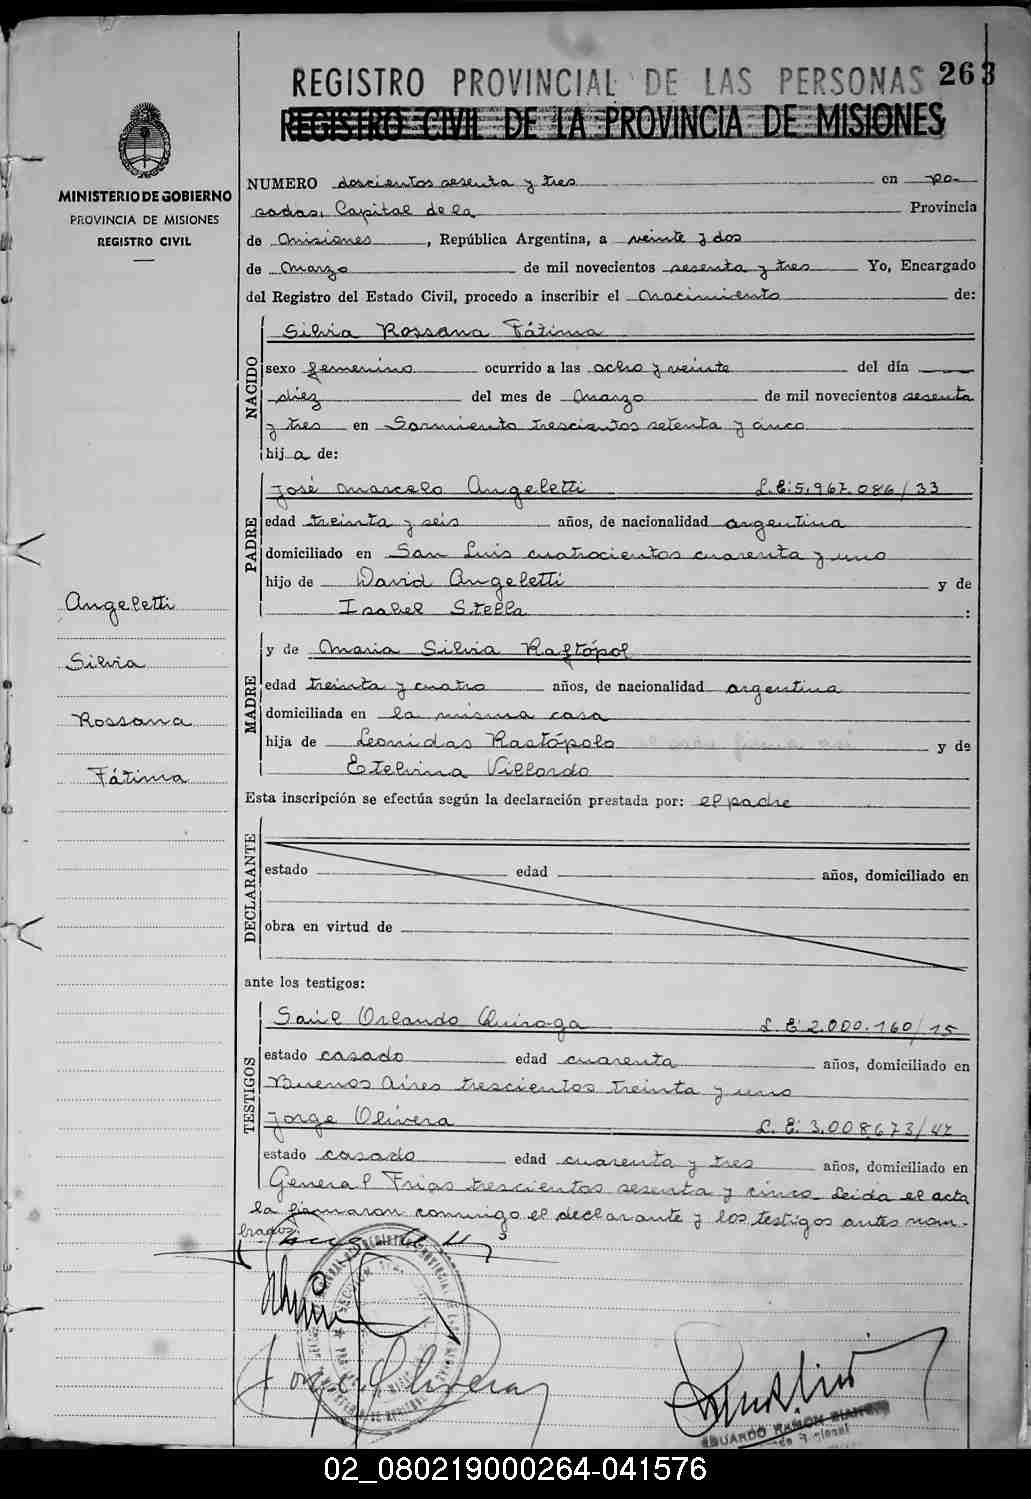 REGISTRO PROVINCIAL DE LAS PERSONAS 263
REGISTRO CIVIL DE LA PROVINCIA DE MISIONES
MINISTERIO DE GOBIERNO
PROVINCIA DE MISIONES
REGISTRO CIVIL
NUMERO doscientos sesenta y tres en Po-
sadas, Capital de la Provincia
de Misiones, República Argentina, a veinte y dos
de Marzo de mil novecientos sesenta y tres Yo, Encargado
del Registro del Estado Civil, procedo a inscribir el nacimiento de:
NACIDO
Silvia Rossana Fátima
sexo femenino ocurrido a las ocho y veinte del día
diez del mes de Marzo de mil novecientos sesenta
y tres en Sarmiento trescientos setenta y cinco
hij a de:
PADRE
José Marcelo Angeletti L.E:5.967.086/33
edad treinta y seis años, de nacionalidad argentina
domiciliado en San Luis cuatrocientos cuarenta y uno
hijo de David Angeletti y de
Isabel Stella :
MADRE
y de Maria Silvia Raftópol
edad treinta y cuatro años, de nacionalidad argentina
domiciliada en la misma casa
hija de Leonidas Rastópolo y de
Etelvina Villordo
Angeletti
Silvia
Rossana
Fátima
Esta inscripción se efectúa según la declaración prestada por: el padre
DECLARANTE
estado edad años, domiciliado en
obra en virtud de
ante los testigos:
TESTIGOS
Saúl Orlando Quiroga L.E:2.000.160/15
estado casado edad cuarenta años, domiciliado en
Buenos Aires trescientos treinta y uno
Jorge Olivera L.E:3.008.673/47
estado casado edad cuarenta y tres años, domiciliado en
General Frias trescientos sesenta y cinco. Leida el acta
la firmaron conmigo el declarante y los testigos antes nom-
brados.
Jorge Olivera
EDUARDO RAMON
02_080219000264-041576